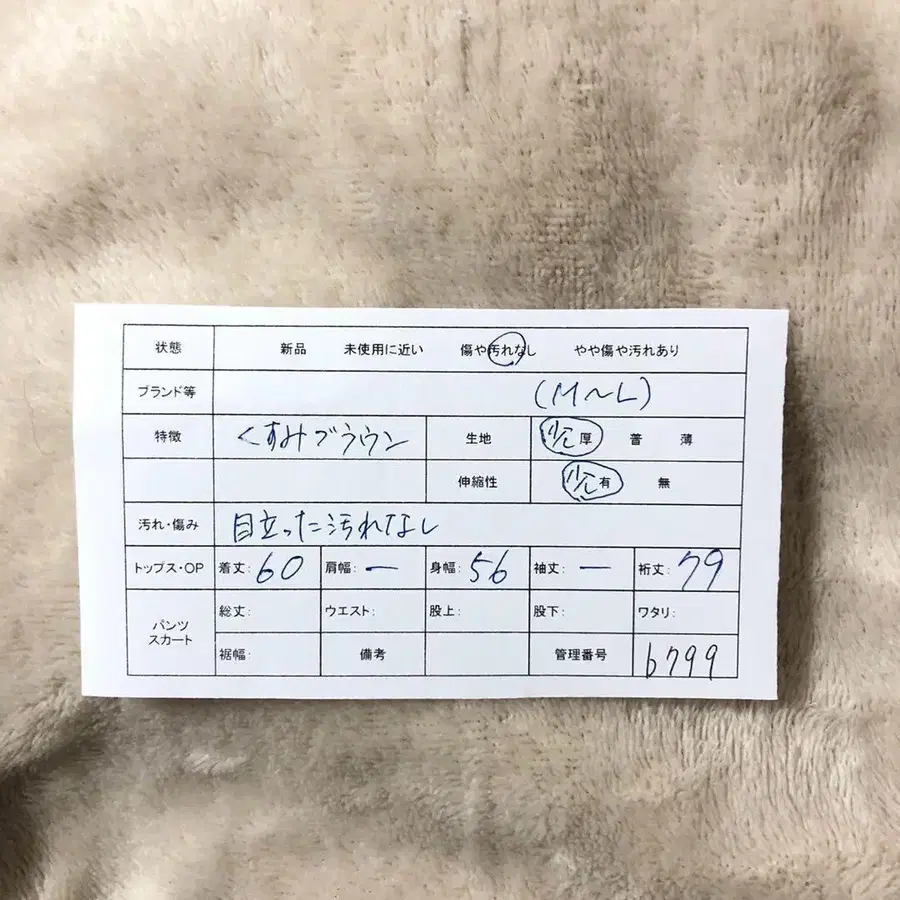 状態 新品 未使用に近い 傷や汚れなし やや傷や汚れあり
ブランド等 (M〜L)
特徴 くすみブラウン 生地 少し厚 普 薄
伸縮性 少し有 無
汚れ・傷み 目立った汚れなし
トップス・OP 着丈:60 肩幅:ー 身幅:56 袖丈:ー 裄丈:79
パンツ スカート 総丈: ウエスト: 股上: 股下: ワタリ:
裾幅: 備考 管理番号 b799